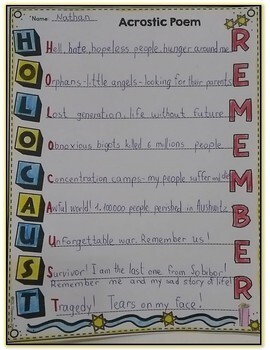 Name: Nathan
Acrostic Poem
H Hell, hate, hopeless people, hunger around me
O Orphans-little angels-looking for their parents
L Lost generation, life without future
O Obnoxious bigots killed 6 millions people
C Concentration camps-my people suffer and die
A Awful world! 1,100000 people perished in Aushwitz
U Unforgettable war. Remember us!
S Survivor! I am the last one from Sobibor!
Remember me and my sad story of life!
T Tragedy! Tears on my face!
REMEMBER